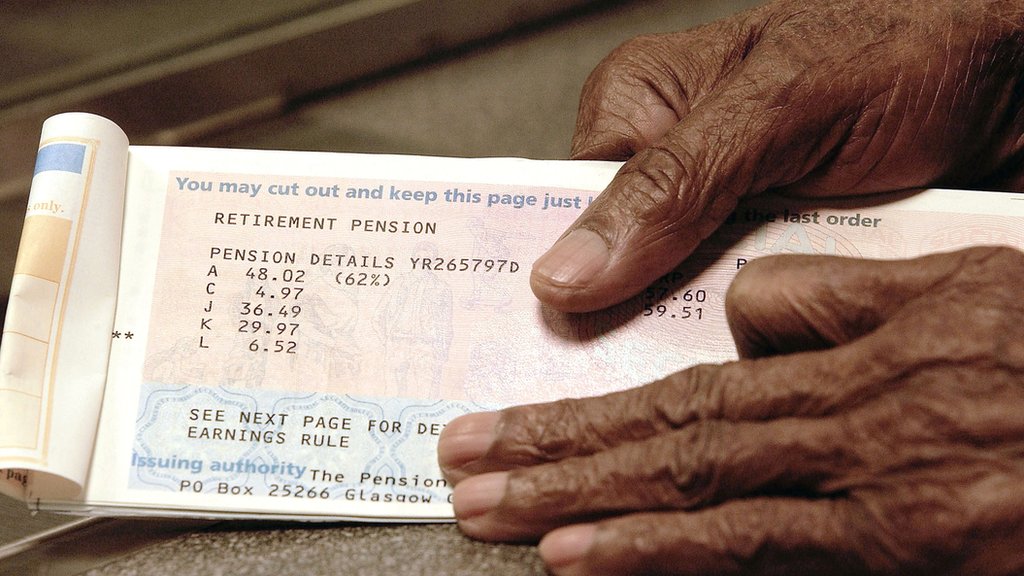 only.
You may cut out and keep this page just
the last order
RETIREMENT PENSION
PENSION DETAILS YR265797D
A 48.02 (62%)
C 4.97
J 36.49
K 29.97
L 6.52
.60
59.51
**
SEE NEXT PAGE FOR
EARNINGS RULE
Issuing authority The Pension
PO Box 25266 Glasgow